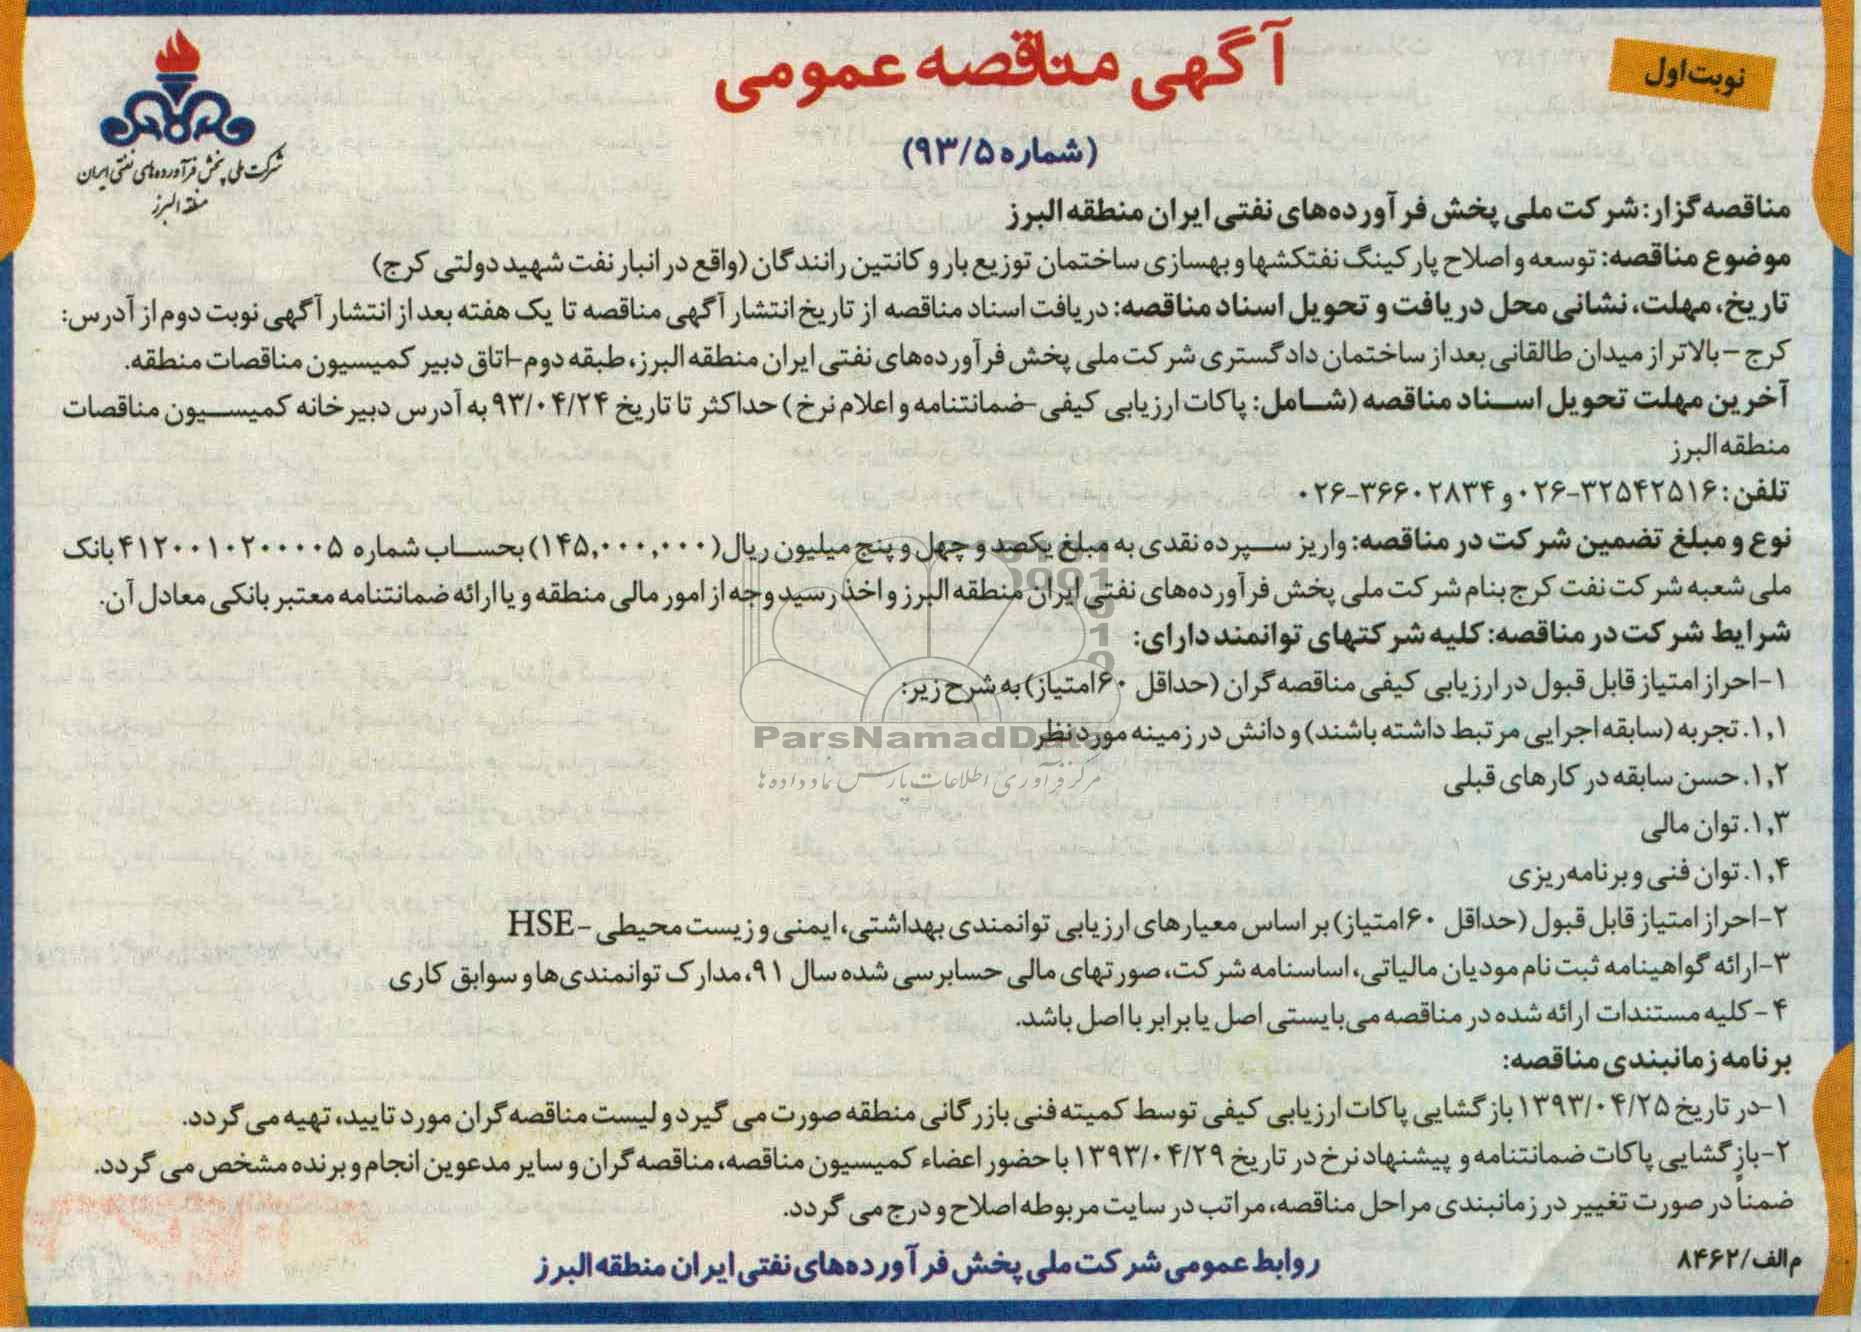 نوبت اول
آگهی مناقصه عمومی
(شماره ۹۳/۵)
شرکت ملی پخش فرآورده‌های نفتی ایران
منطقه البرز
مناقصه گزار: شرکت ملی پخش فرآورده‌های نفتی ایران منطقه البرز
موضوع مناقصه: توسعه و اصلاح پارکینگ نفتکشها و بهسازی ساختمان توزیع بار و کانتین رانندگان (واقع در انبار نفت شهید دولتی کرج)
تاریخ، مهلت، نشانی محل دریافت و تحویل اسناد مناقصه: دریافت اسناد مناقصه از تاریخ انتشار آگهی مناقصه تا یک هفته بعد از انتشار آگهی نوبت دوم از آدرس:
کرج – بالاتر از میدان طالقانی بعد از ساختمان دادگستری شرکت ملی پخش فرآورده‌های نفتی ایران منطقه البرز، طبقه دوم-اتاق دبیر کمیسیون مناقصات منطقه.
آخرین مهلت تحویل اسناد مناقصه (شامل: پاکات ارزیابی کیفی -ضمانتنامه و اعلام نرخ) حداکثر تا تاریخ ۹۳/۰۴/۲۴ به آدرس دبیرخانه کمیسیون مناقصات
منطقه البرز
تلفن: ۳۲۵۴۲۵۱۶-۰۲۶ و ۳۶۶۰۲۸۳۴-۰۲۶
نوع و مبلغ تضمین شرکت در مناقصه: واریز سپرده نقدی به مبلغ یکصد و چهل و پنج میلیون ریال (۱۴۵,۰۰۰,۰۰۰) بحساب شماره ۴۱۲۰۰۱۰۲۰۰۰۰۵ بانک
ملی شعبه شرکت نفت کرج بنام شرکت ملی پخش فرآورده‌های نفتی ایران منطقه البرز و اخذ رسید وجه از امور مالی منطقه و یا ارائه ضمانتنامه معتبر بانکی معادل آن.
شرایط شرکت در مناقصه: کلیه شرکتهای توانمند دارای:
۱-احراز امتیاز قابل قبول در ارزیابی کیفی مناقصه گران (حداقل ۶۰ امتیاز) به شرح زیر:
۱,۱. تجربه (سابقه اجرایی مرتبط داشته باشند) و دانش در زمینه مورد نظر
ParsNamadData
مرکز فرآوری اطلاعات پارس نماد داده‌ها
۱,۲. حسن سابقه در کارهای قبلی
۱,۳. توان مالی
۱,۴. توان فنی و برنامه‌ریزی
۲-احراز امتیاز قابل قبول (حداقل ۶۰ امتیاز) بر اساس معیارهای ارزیابی توانمندی بهداشتی، ایمنی و زیست محیطی -HSE
۳-ارائه گواهینامه ثبت نام مودیان مالیاتی، اساسنامه شرکت، صورتهای مالی حسابرسی شده سال ۹۱، مدارک توانمندی‌ها و سوابق کاری
۴- کلیه مستندات ارائه شده در مناقصه می‌بایستی اصل یا برابر با اصل باشد.
برنامه زمانبندی مناقصه:
۱-در تاریخ ۱۳۹۳/۰۴/۲۵ بازگشایی پاکات ارزیابی کیفی توسط کمیته فنی بازرگانی منطقه صورت می گیرد و لیست مناقصه گران مورد تایید، تهیه می گردد.
۲-بازگشایی پاکات ضمانتنامه و پیشنهاد نرخ در تاریخ ۱۳۹۳/۰۴/۲۹ با حضور اعضاء کمیسیون مناقصه، مناقصه گران و سایر مدعوین انجام و برنده مشخص می گردد.
ضمناً در صورت تغییر در زمانبندی مراحل مناقصه، مراتب در سایت مربوطه اصلاح و درج می گردد.
م الف/۸۴۶۲
روابط عمومی شرکت ملی پخش فرآورده‌های نفتی ایران منطقه البرز